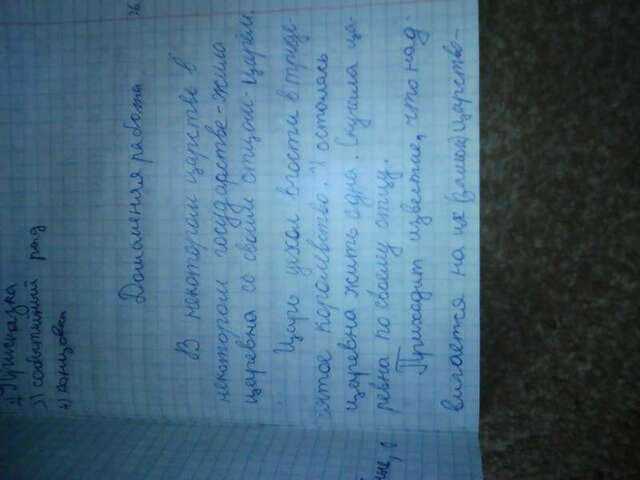 2) Присказка
3) событийный ряд
4) концовка
Домашняя работа
В некотором царстве в
некотором государстве-жила
царевна со своим отцом-царём.
Царь уехал в гости в триде-
сятое королевство. И осталась
царевна жить одна. Скучала ца-
ревна по своему отцу.
Приходит известие, что над-
вигается на це царство-